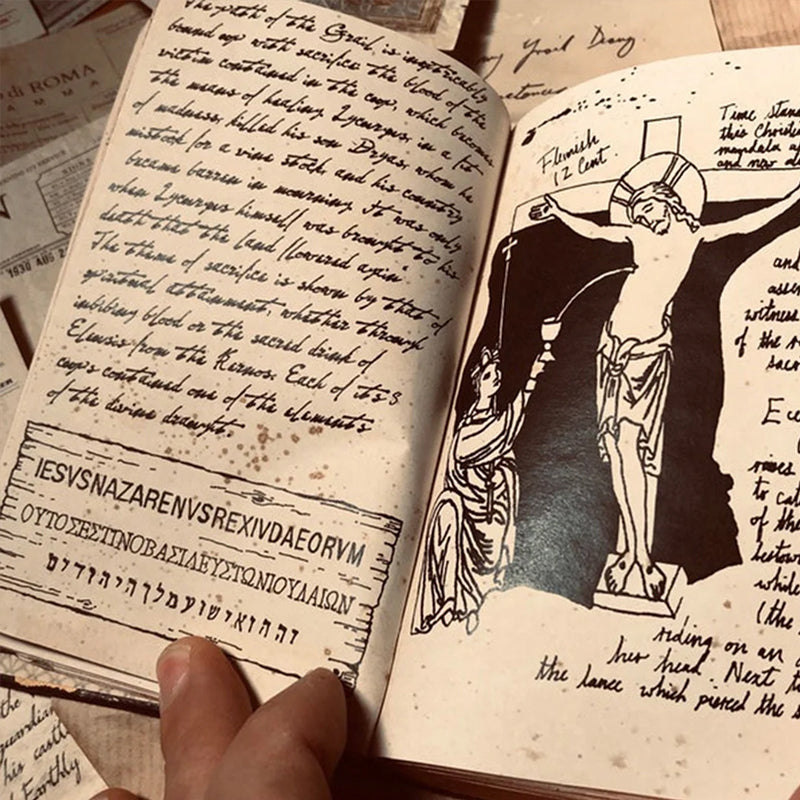 The path of the Grail, is inextricably
bound up with sacrifice the blood of the
victim contained in the cup, which becomes
the means of healing Lycurgus, in a fit
of madness, killed his son Dryas, whom he
mistook for a vine stock, and his country
became barren in mourning. It was only
when Lycurgus himself was brought to his
death that the land flowered again"
The theme of sacrifice is shown by that of
spiritual attainment, whether through
imbibing blood or the sacred drink of
Eleusis from the Kernos. Each of it's
cups contained one of the elements
of the divine draught.
IESVSNAZARENVSREXIVDAEORVM
ΟΥΤΟΣΕΣΤΙΝΟΒΑΣΙΛΕΥΣΤΩΝΙΟΥΔΑΙΩΝ
זההואישועמלךהיהודים
Flemish
12 Cent.
Time
this
mandala
and now
and
witness
of the
Next
riding on an
her head. Next
the lance which pierced the
of the
to
while
(the
di ROMA
1930
the
guardian
his castle
Earthly